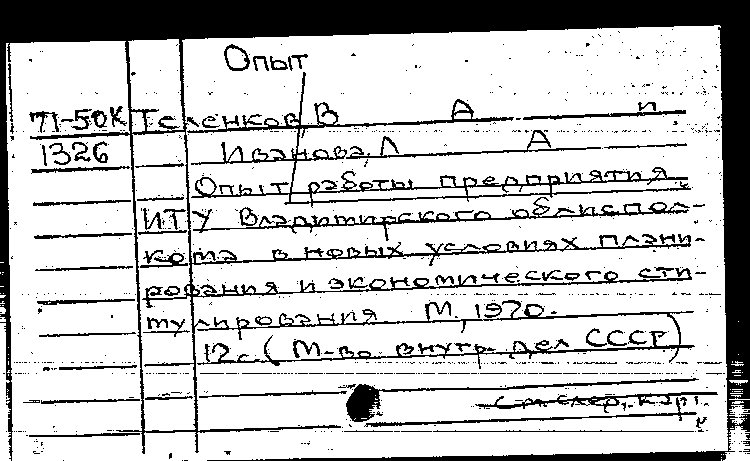 Опыт
71-50К Теленков, В А и
1326 Иванова, Л А
Опыт работы предприятия
ИТУ Владимирского облиспол-
кома в новых условиях плани-
рования и экономического сти-
мулирования М., 1970.
12 с. (М-во внутр. дел СССР)
см. след. карт.